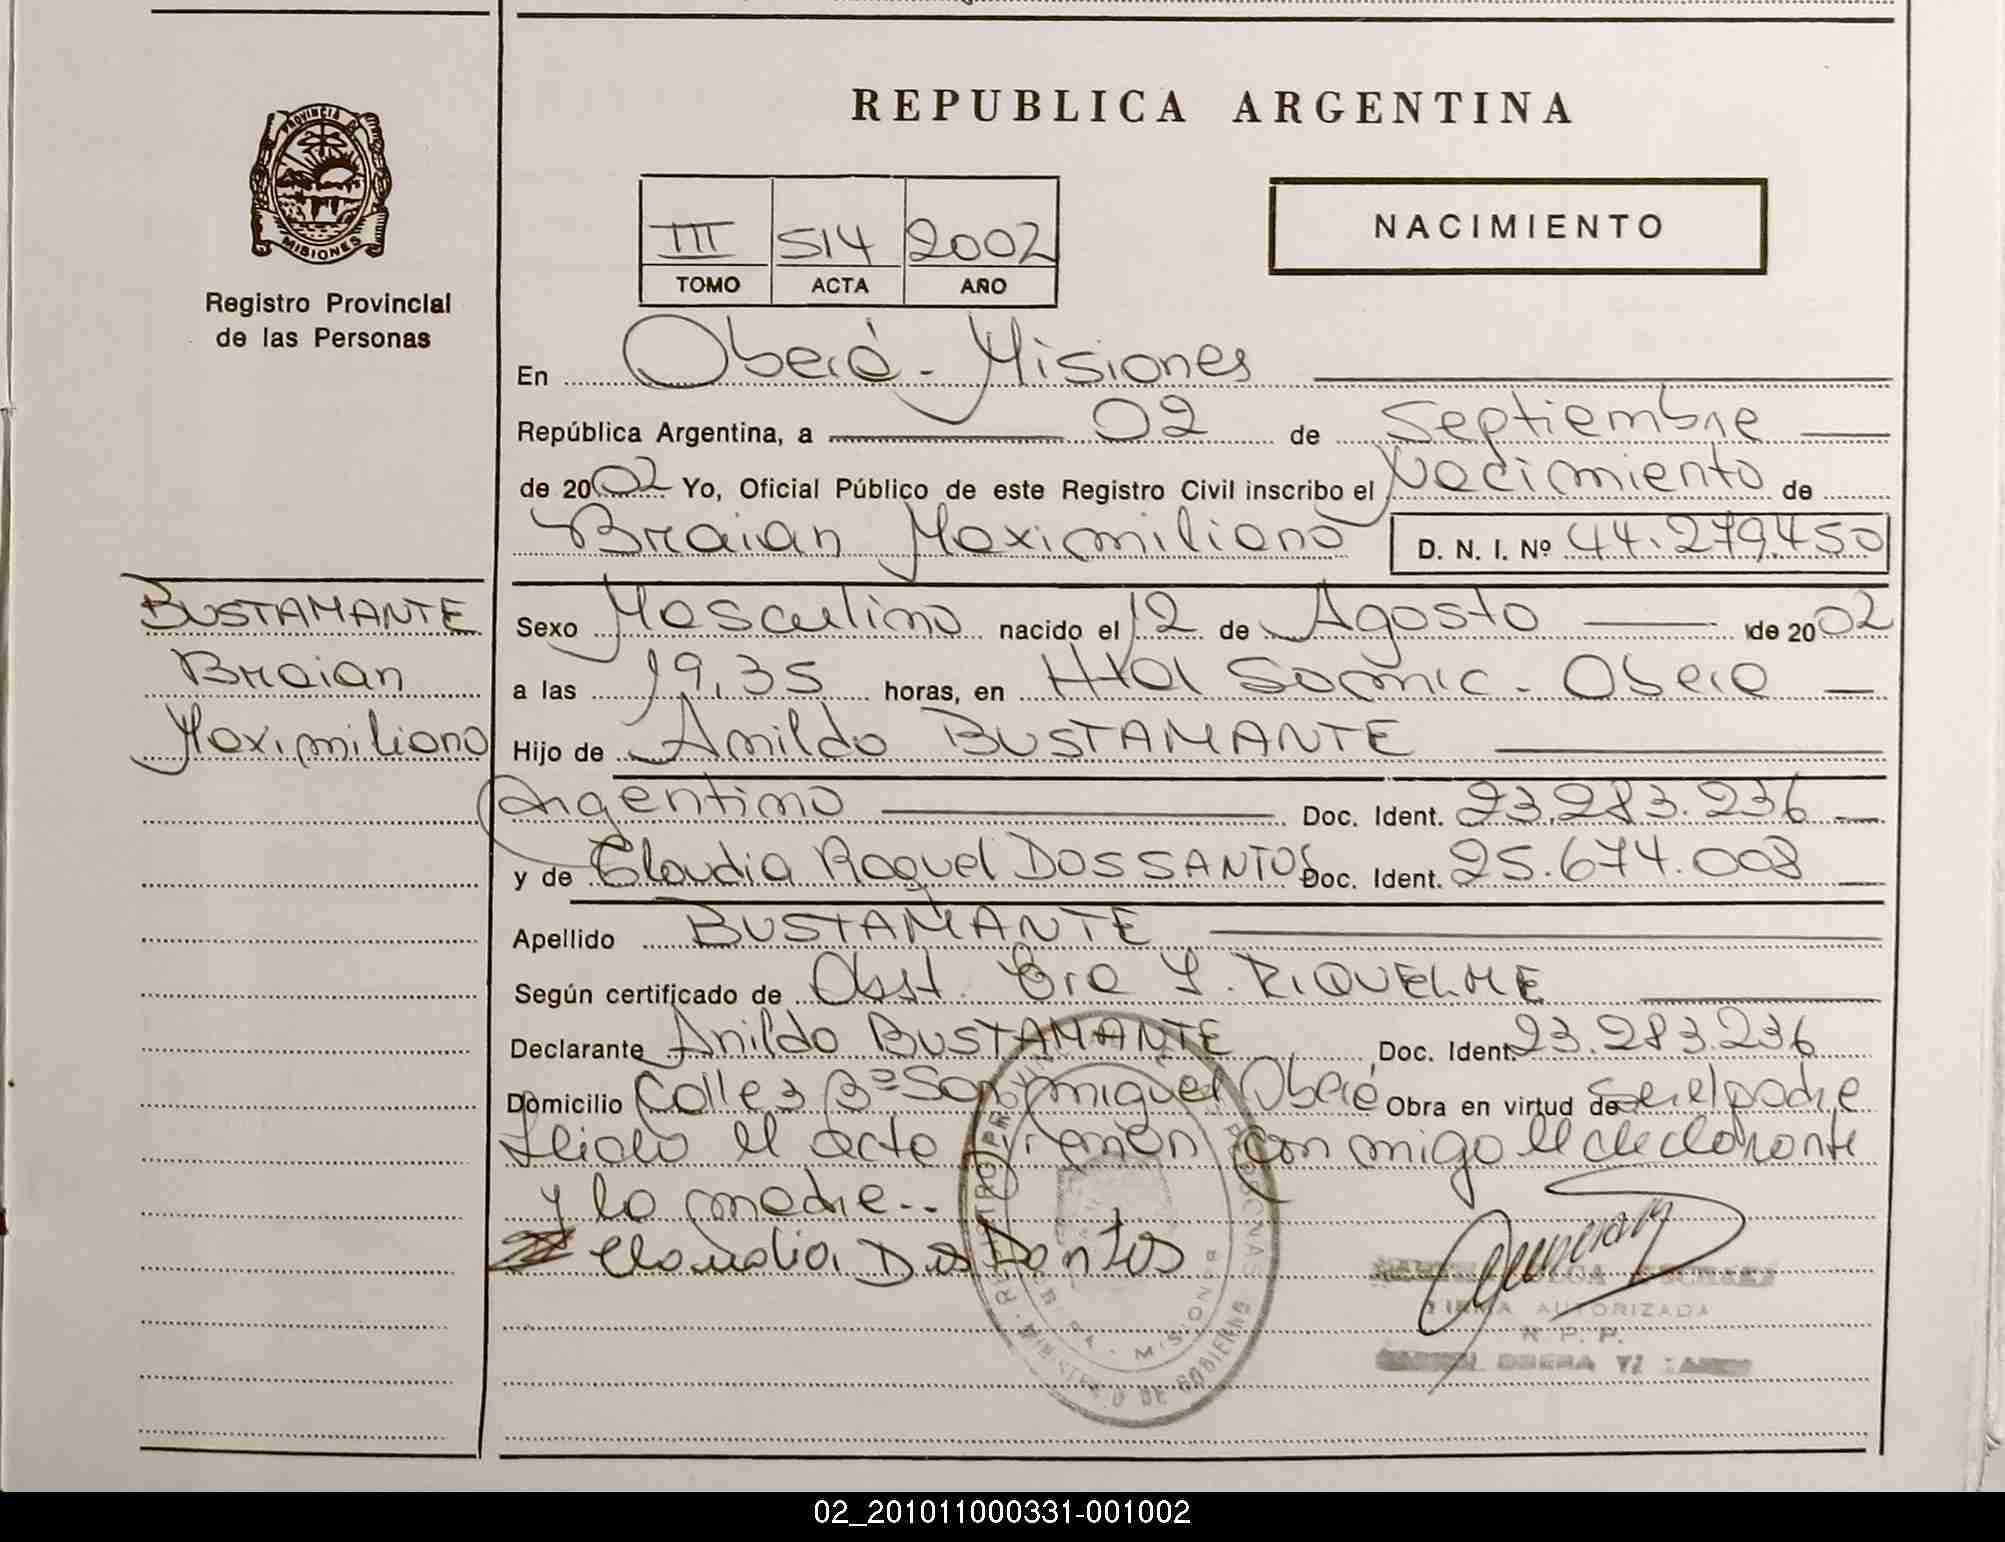 REPUBLICA ARGENTINA
PROVINCIA DE
MISIONES
Registro Provincial
de las Personas
III 514 2002
TOMO ACTA AÑO
NACIMIENTO
En Oberá - Misiones
República Argentina, a 02 de Septiembre
de 2002 Yo, Oficial Público de este Registro Civil inscribo el Nacimiento de
Braian Maximiliano D. N. I. Nº 44.279.450
BUSTAMANTE
Braian
Maximiliano
Sexo Masculino nacido el 12 de Agosto de 2002
a las 19,35 horas, en Htal Samic - Oberá
Hijo de Anildo BUSTAMANTE
Argentino Doc. Ident. 23.283.236
y de Claudia Raquel DOS SANTOS Doc. Ident. 25.674.008
Apellido BUSTAMANTE
Según certificado de Obst. RIQUELME
Declarante Anildo BUSTAMANTE Doc. Ident. 23.283.236
Domicilio Calle 3 Bº San miguel Oberá Obra en virtud de ser el padre
Leida el acta firman con migo el declarante
y la madre..
Claudia Dos Santos
FIRMA AUTORIZADA
R. P. P.
MINISTERIO DE GOBIERNO
MISIONES
02_201011000331-001002